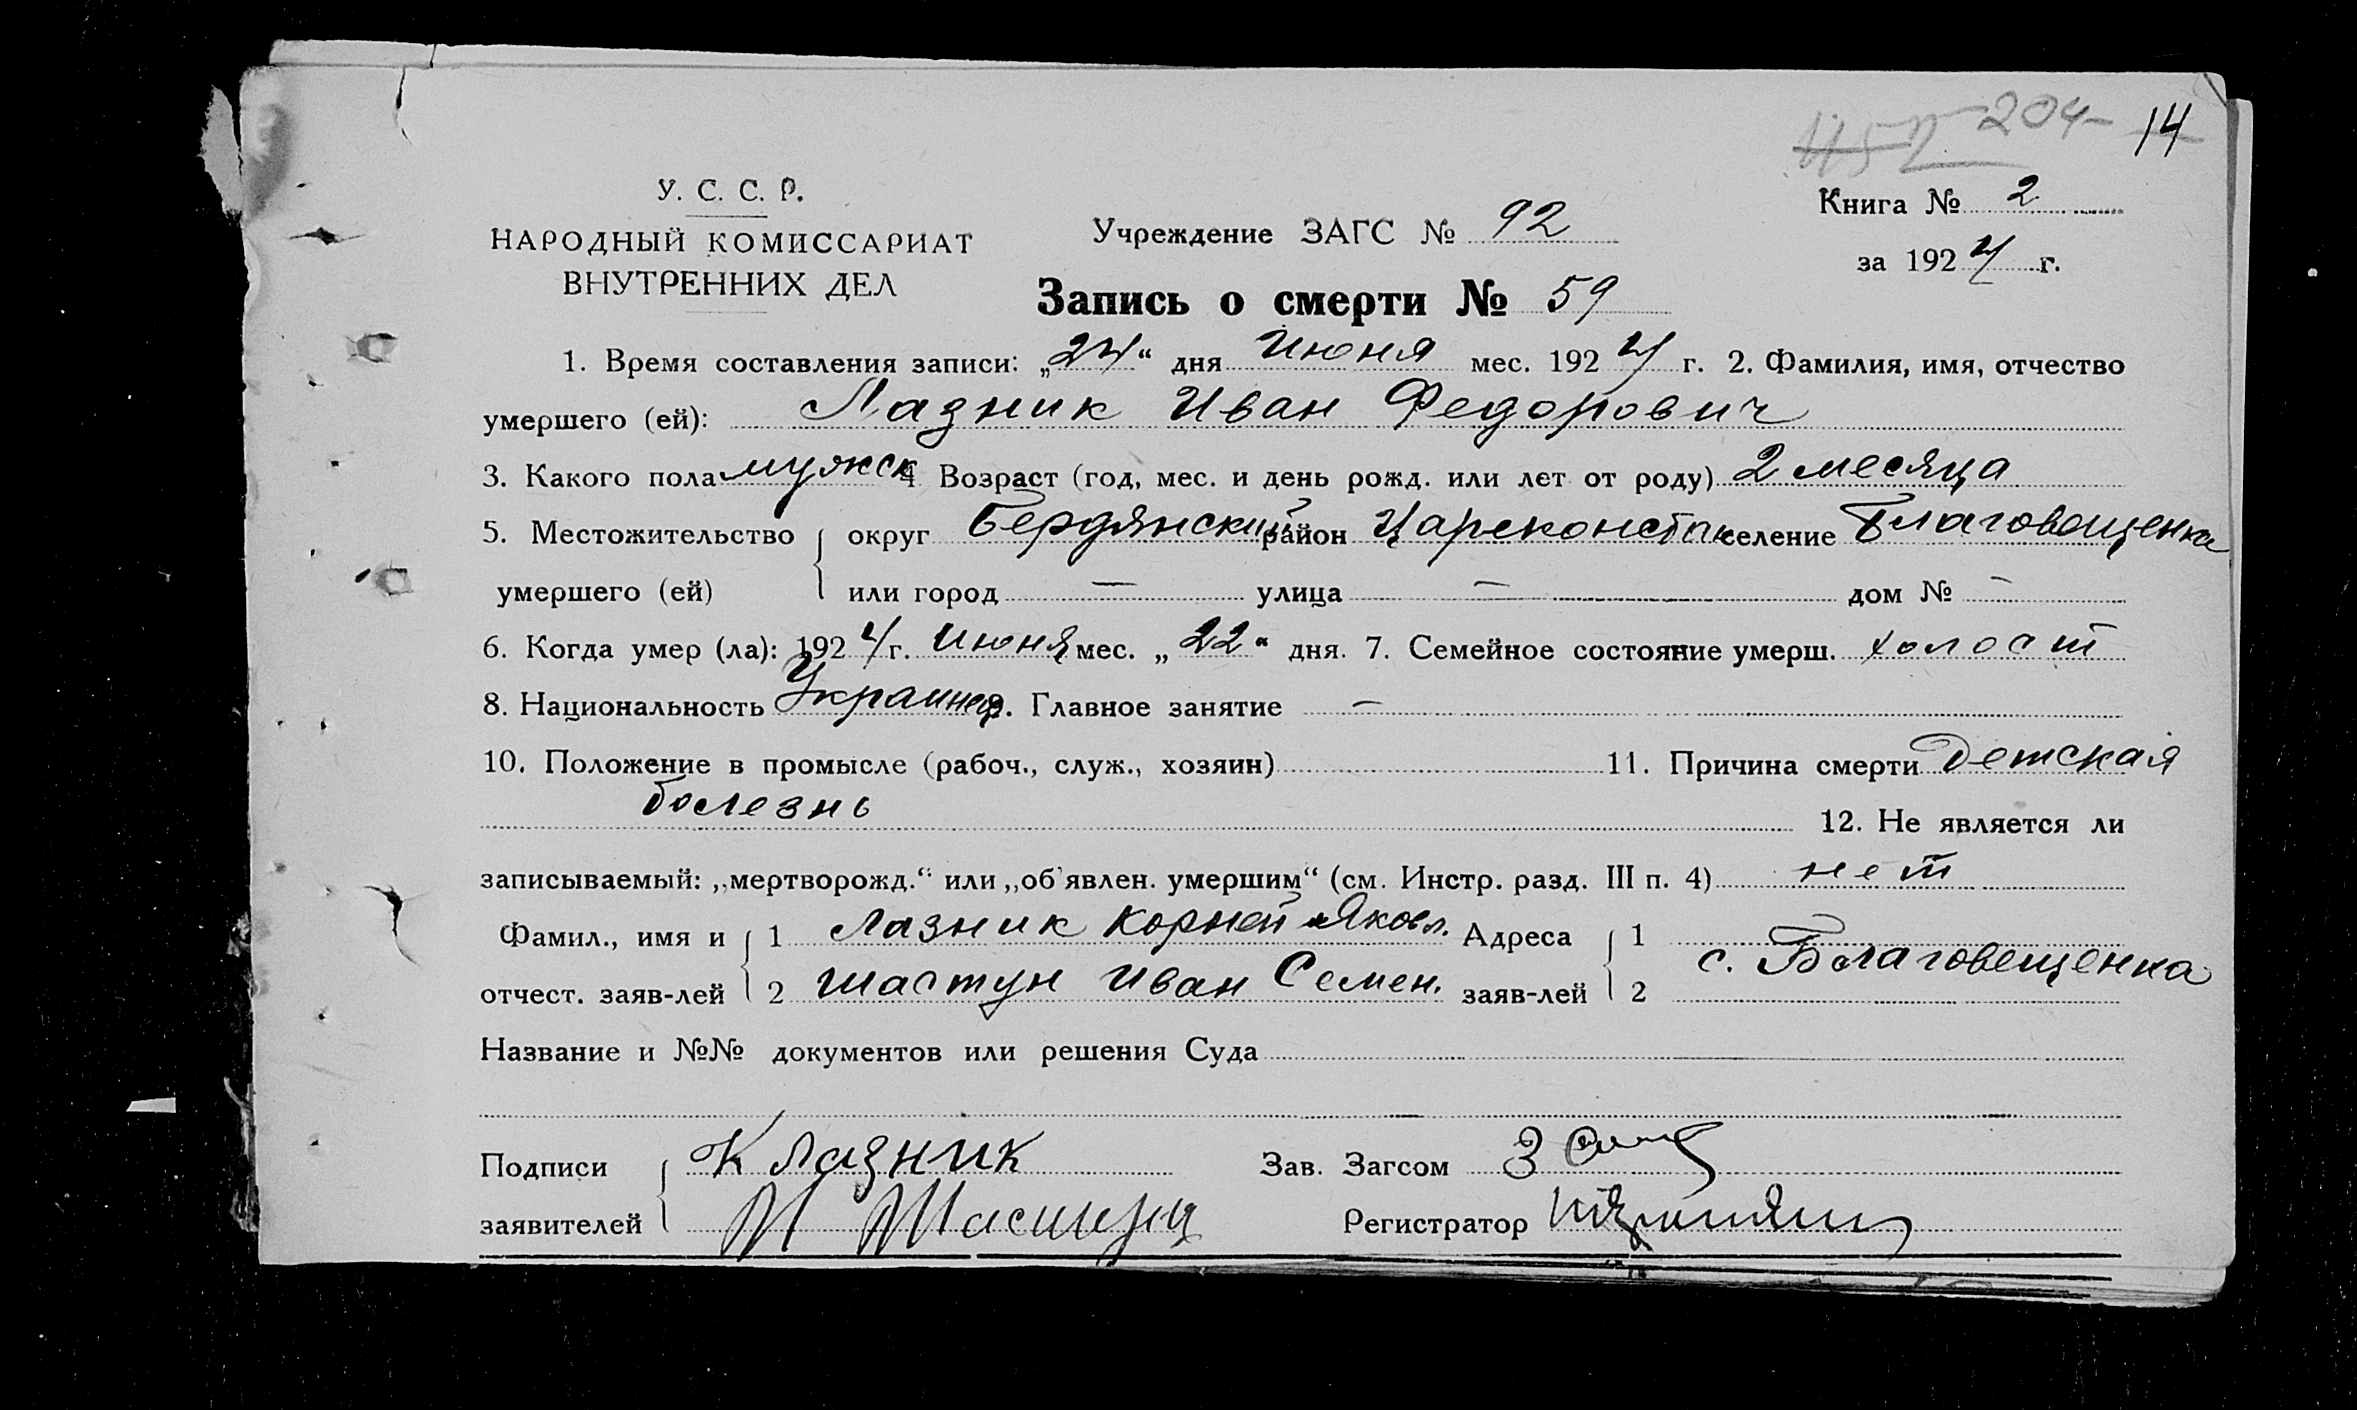 204 14
У. С. С. Р.
НАРОДНЫЙ КОМИССАРИАТ
ВНУТРЕННИХ ДЕЛ
Учреждение ЗАГС № 92
Книга № 2
за 1924 г.
Запись о смерти № 59
1. Время составления записи: „24“ дня Июня мес. 1924 г. 2. Фамилия, имя, отчество
умершего (ей): Лазник Иван Федорович
3. Какого пола мужск 4 Возраст (год, мес. и день рожд. или лет от роду) 2 месяца
5. Местожительство округ Бердянский район Цареконстан селение Благовещенка
умершего (ей) или город — улица — дом № —
6. Когда умер (ла): 1924 г. Июня мес. „22“ дня. 7. Семейное состояние умерш. холост
8. Национальность Украинец 9. Главное занятие —
10. Положение в промысле (рабоч., служ., хозяин) 11. Причина смерти Детская
болезнь 12. Не является ли
записываемый: „мертворожд.“ или „об'явлен. умершим“ (см. Инстр. разд. III п. 4) нет
Фамил., имя и 1 Лазник Корней Яковл. Адреса 1
с. Благовещенка
отчест. заяв-лей 2 Шастун Иван Семен. заяв-лей 2
Название и №№ документов или решения Суда
Подписи К Лазник Зав. Загсом
заявителей Регистратор